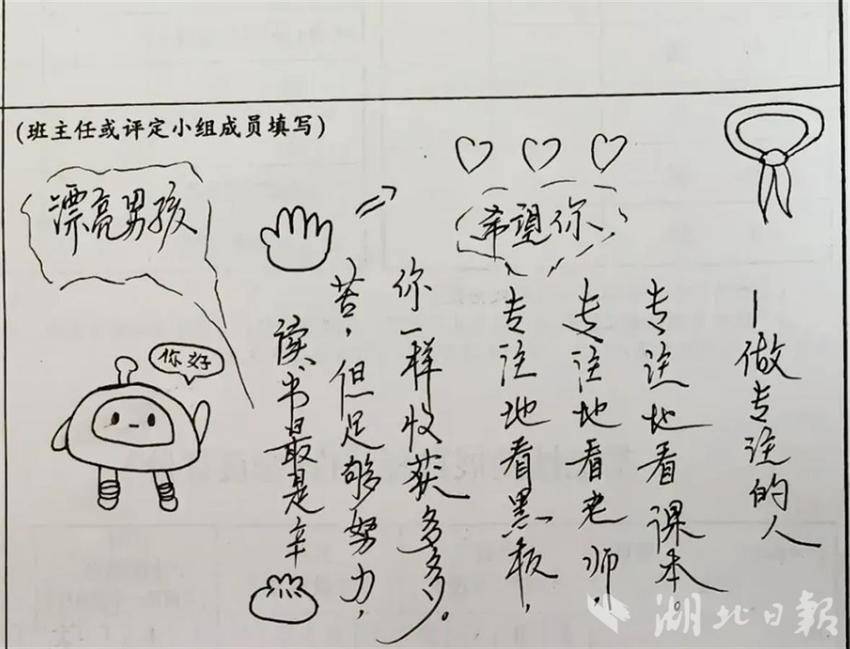 (班主任或评定小组成员填写)
漂亮男孩
你好
读书最是辛
苦，但足够努力，
你一样收获多多。
希望你
专注地看黑板，
专注地看老师，
专注地看课本。
—做专注的人
湖北日報